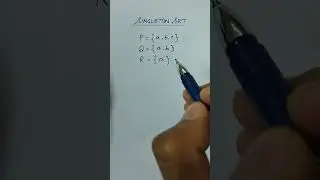 SINGLETON SET
P = {a, b, c}
Q = {a, b}
R = {a}